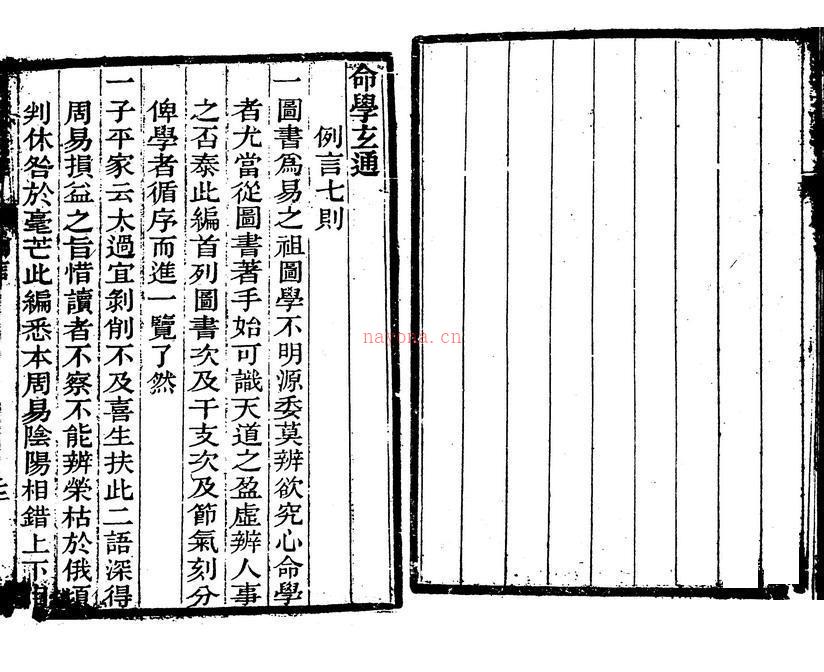 命學玄通
例言七則
一圖書爲易之祖圖學不明源委莫辨欲究心命學
者尤當從圖書著手始可識天道之盈虛辨人事
之否泰此編首列圖書次及干支次及節氣刻分
俾學者循序而進一覽了然
一子平家云太過宜剝削不及喜生扶此二語深得
周易損益之旨惜讀者不察不能辨榮枯於俄頃
判休咎於毫芒此編悉本周易陰陽相錯上下
nayona.cn